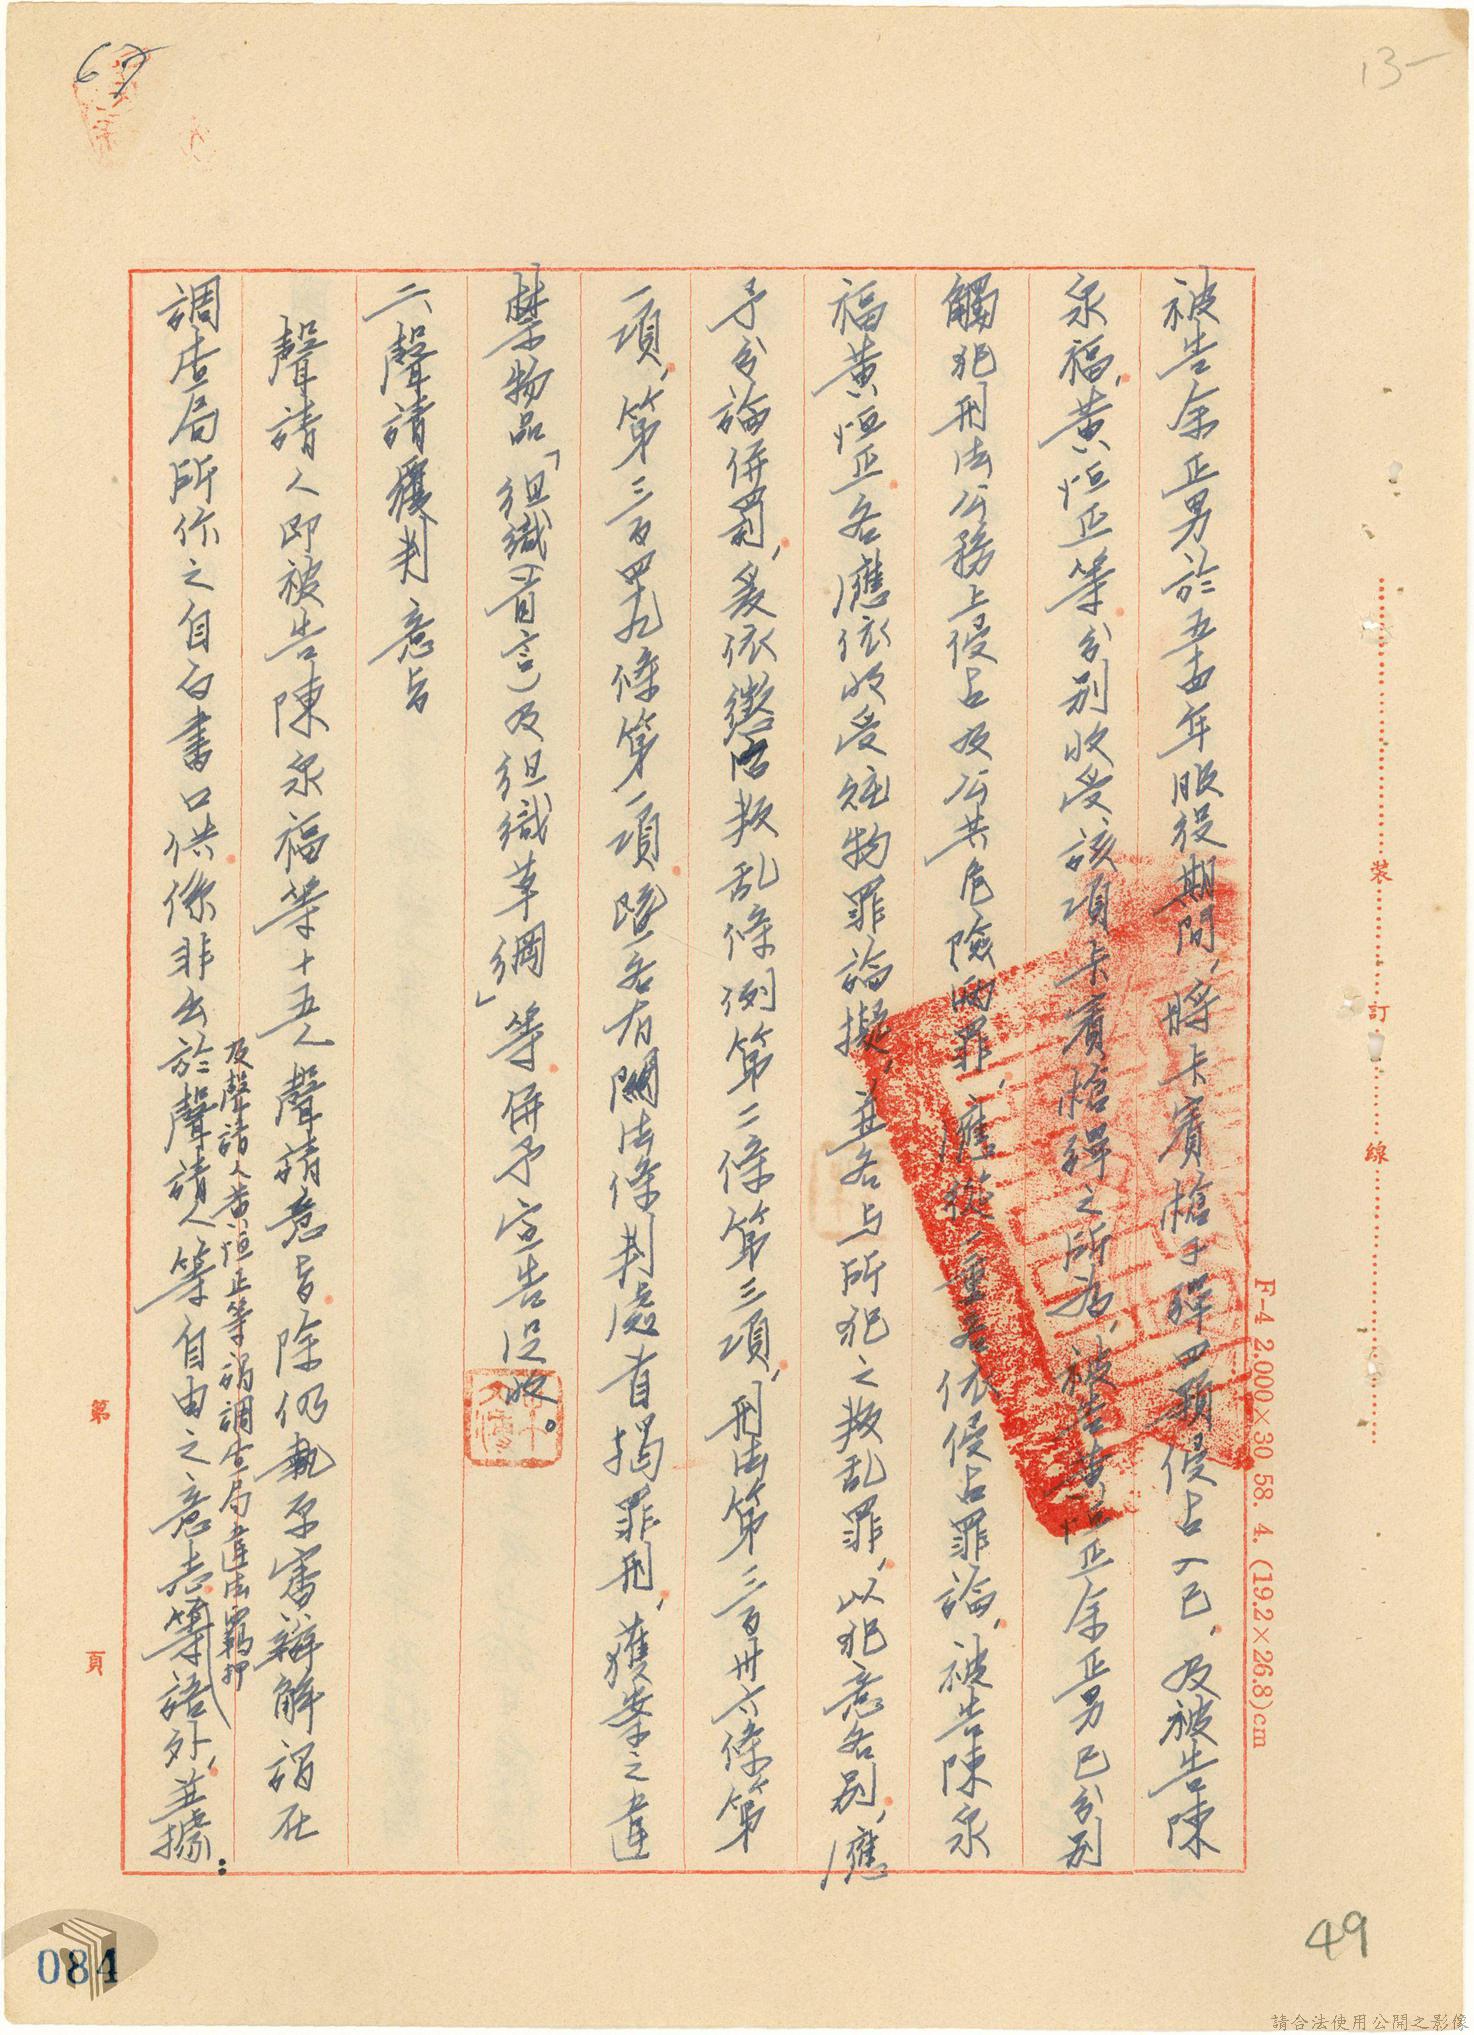 67
13-
被告余正男於五四年服役期間，將卡賓槍子彈四顆侵占入已，及被告陳
永福，黃恒正等分別收受該項卡賓槍彈之所為，被告黃恒正余正男已分別
觸犯刑法公務上侵占及公共危險兩罪，應從一重各依侵占罪論，被告陳永
福黃恒正各應依收受贓物罪論擬，並各与所犯之叛乱罪，以犯意各別，應
予分論併罰，爰依懲治叛乱條例第二條第三項，刑法第三百卅六條第
一項，第三百四十九條第一項暨各有關法條判處首揭罪刑，獲案之違
禁物品「組織(首言)及組織草綱」等併予宣告沒收。
二、聲請覆判意旨
聲請人即被告陳永福等十五人聲請意旨除仍執原審辯解謂在
及聲請人黃恒正等謂調查局違法羈押
調查局所作之自白書口供係非出於聲請人等自由之意志等語外，並據：
裝 訂 線
F-4 2.000×30 58. 4. (19.2×26.8)cm
第 頁
084
49
請合法使用公開之影像